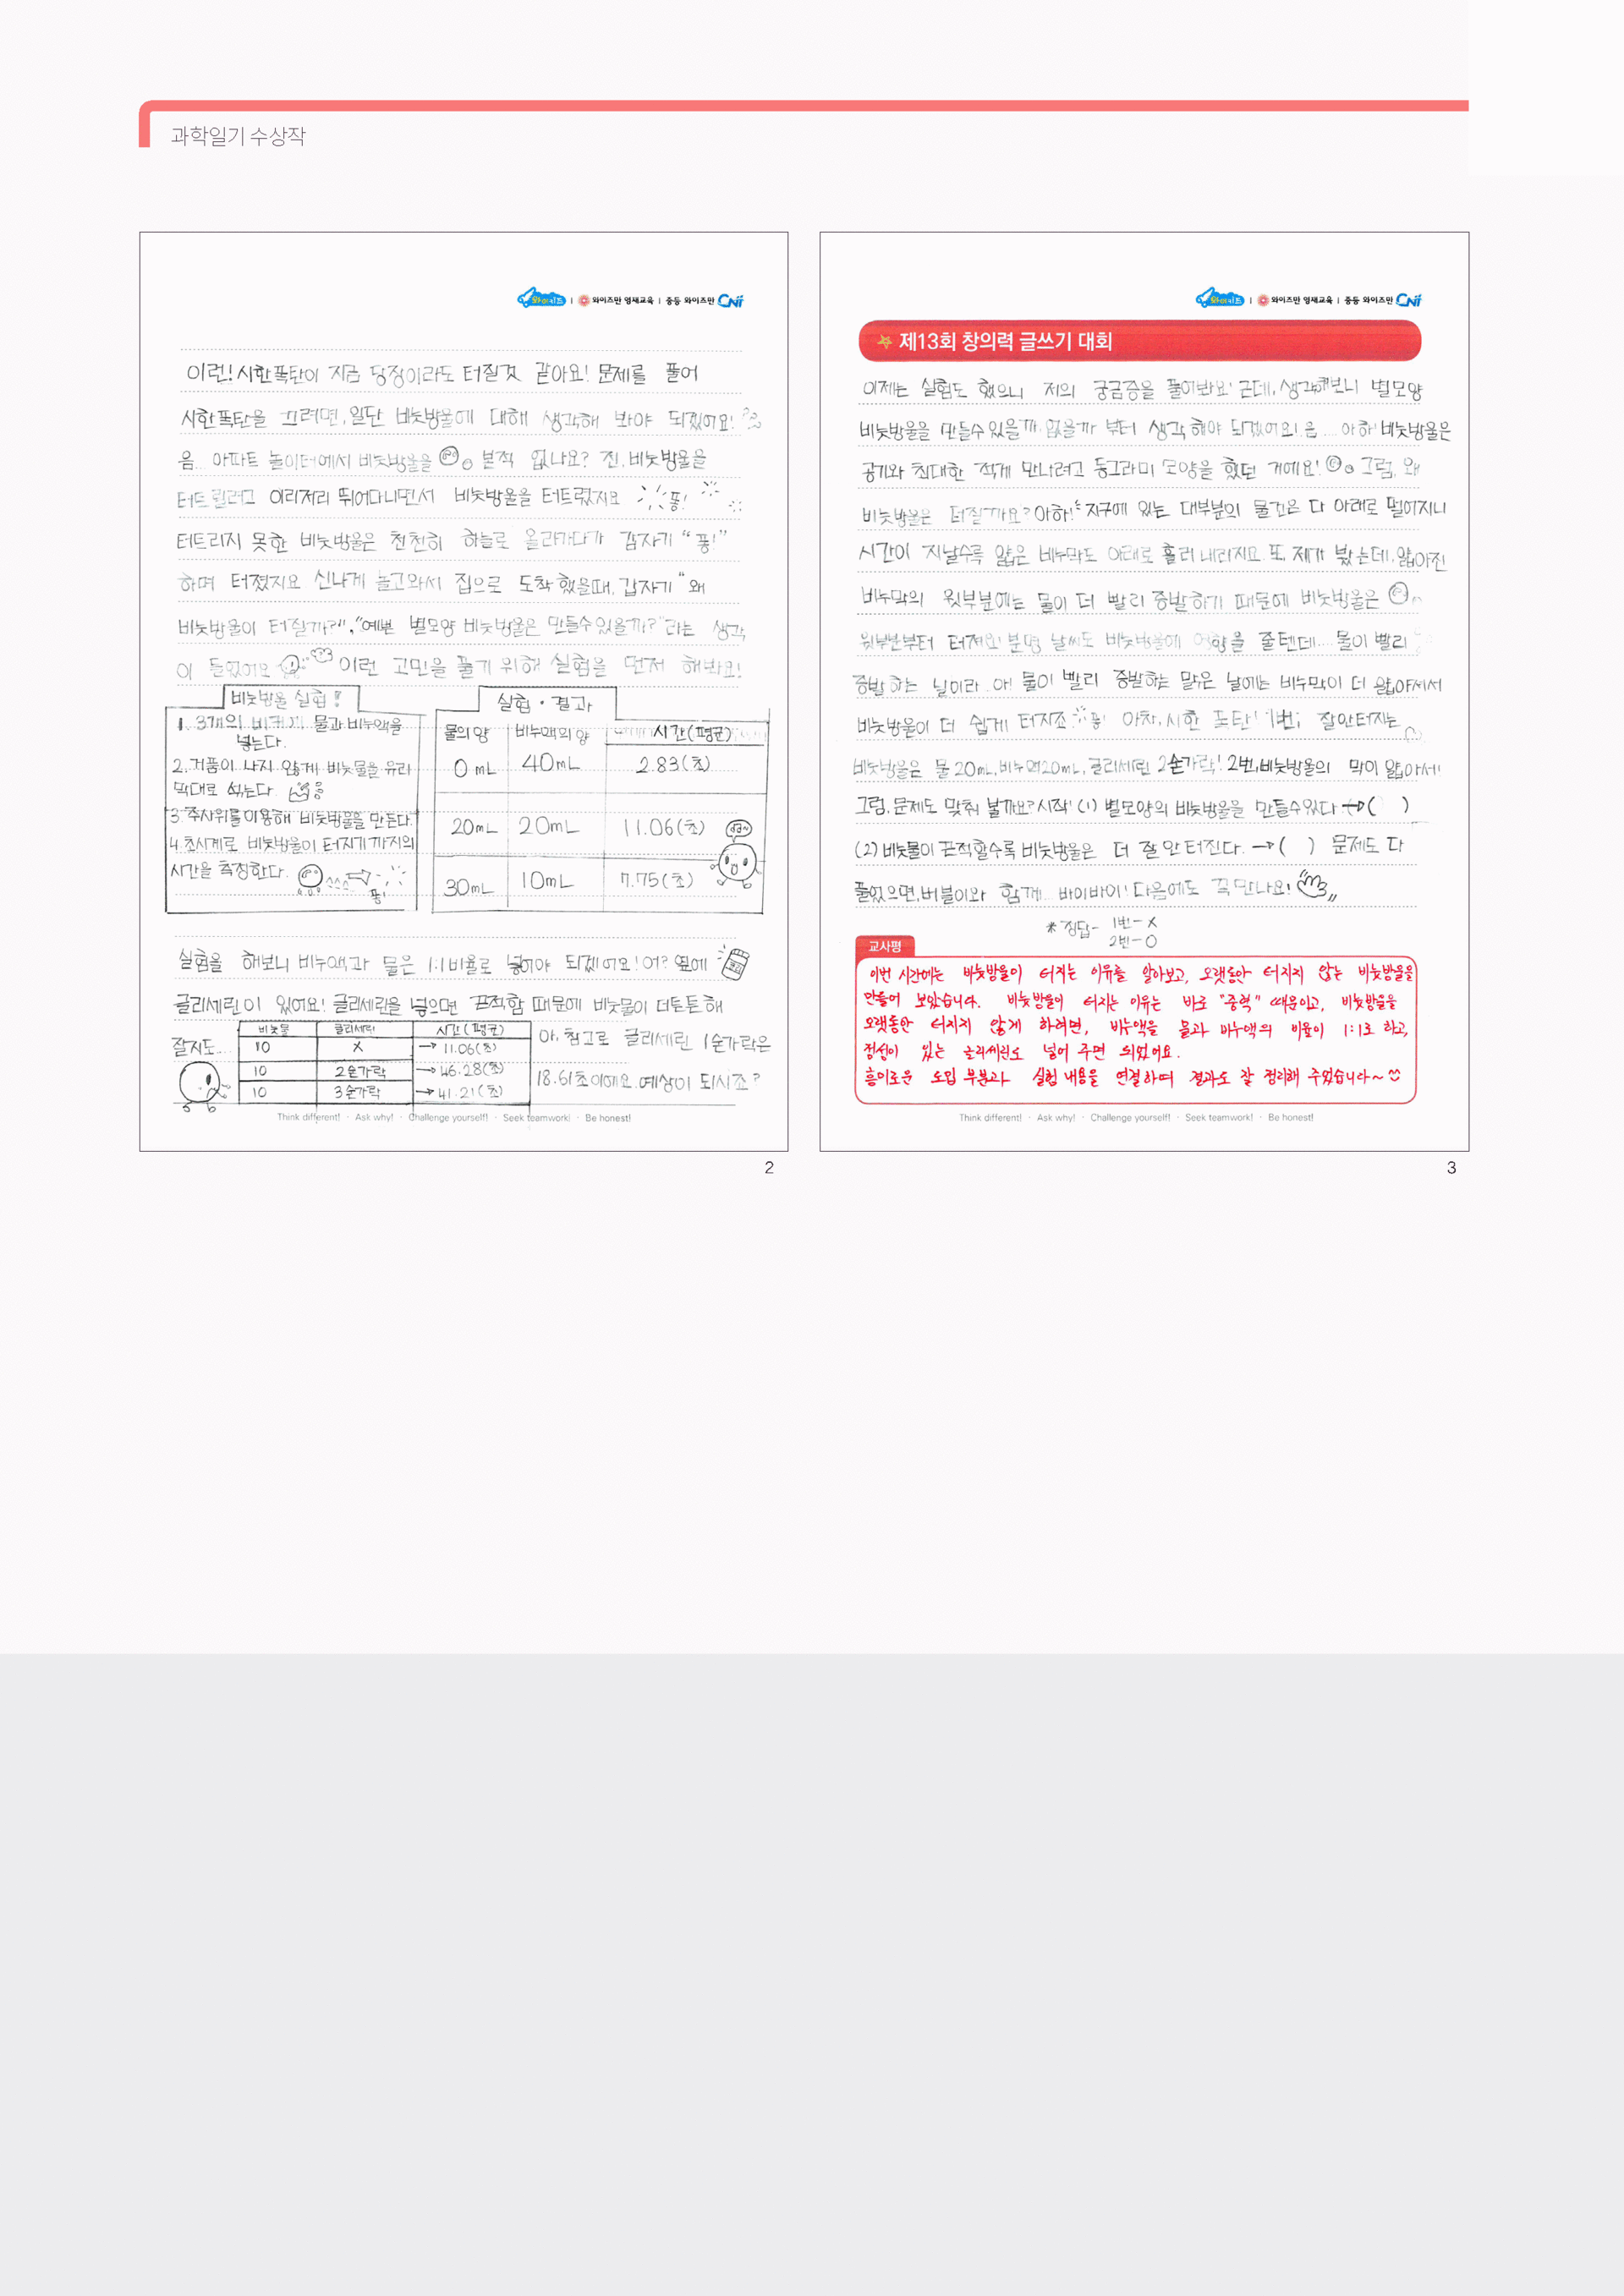 과학일기 수상작
와이키즈 | 와이즈만 영재교육 | 중등 와이즈만 CNI
이런! 시한폭탄이 지금 당장이라도 터질것 같아요! 문제를 풀어
시한폭탄을 끄려면, 일단 비눗방울에 대해 생각해 봐야 되겠어요!
음... 아파트 놀이터에서 비눗방울을 본적 있나요? 전, 비눗방울을
터트릴려고 이리저리 뛰어다니면서 비눗방울을 터트렸지요 펑!
터트리지 못한 비눗방울은 천천히 하늘로 올라가다가 갑자기 "펑!"
하며 터졌지요 신나게 놀고와서 집으로 도착했을때, 갑자기 "왜
비눗방울이 터질까?", "예쁜 별모양 비눗방울은 만들수있을까?"라는 생각
이 들었어요 이런 고민을 풀기 위해 실험을 먼저 해봐요!
비눗방울 실험!
1. 3개의 비커에 물과 비누액을
넣는다.
2. 거품이 나지 않게 비눗물을 유리
막대로 섞는다.
3. 주사위를 이용해 비눗방울을 만든다.
4. 초시계로 비눗방울이 터지기까지의
시간을 측정한다.
펑!
실험·결과
물의 양 비누액의 양 시간(평균)
0mL 40mL 2.83(초)
20mL 20mL 11.06(초)
30mL 10mL 7.75(초)
실험을 해보니 비누액과 물은 1:1비율로 넣어야 되겠어요! 어? 옆에
글리세린이 있어요! 글리세린을 넣으면 끈적함 때문에 비눗물이 더튼튼해
잘지도...
비눗물 글리세린 시간(평균)
10 X → 11.06(초)
10 2숟가락 → 46.28(초)
10 3숟가락 → 41.21(초)
아, 참고로 글리세린 1숟가락은
18.61초이에요. 예상이 되시죠?
Think different! · Ask why! · Challenge yourself! · Seek teamwork! · Be honest!
2
와이키즈 | 와이즈만 영재교육 | 중등 와이즈만 CNI
제13회 창의력 글쓰기 대회
이제는 실험도 했으니 저의 궁금증을 풀어봐요! 근데, 생각해보니 별모양
비눗방울을 만들수 있을까, 없을까 부터 생각해야 되겠어요! 음.... 아하! 비눗방울은
공기와 최대한 적게 만나려고 동그라미 모양을 했던 거에요! 그럼, 왜
비눗방울은 터질까요? 아하! 지구에 있는 대부분의 물건은 다 아래로 떨어지니
시간이 지날수록 얇은 비누막도 아래로 흘러내리지요 또, 제가 봤는데, 얇아진
비누막의 윗부분에는 물이 더 빨리 증발하기 때문에 비눗방울은
윗부분부터 터져요! 분명 날씨도 비눗방울에 영향을 줄텐데... 물이 빨리
증발하는 날이라.. 아! 물이 빨리 증발하는 맑은 날에는 비누막이 더 얇아져서
비눗방울이 더 쉽게 터지죠 펑! 아차, 시한 폭탄! 1번; 잘안터지는
비눗방울은 물 20mL, 비누액20mL, 글리세린 2숟가락! 2번, 비눗방울의 막이 얇아서!
그럼, 문제도 맞춰 볼까요? 시작! (1) 별모양의 비눗방울을 만들수있다 →( )
(2) 비눗물이 끈적할수록 비눗방울은 더 잘 안 터진다. →( ) 문제도 다
풀었으면, 버블이와 함께... 바이바이! 다음에도 꼭 만나요!
* 정답- 1번-X
2번-O
교사평
이번 시간에는 비눗방울이 터지는 이유를 알아보고, 오랫동안 터지지 않는 비눗방울을
만들어 보았습니다. 비눗방울이 터지는 이유는 바로 "중력" 때문이고, 비눗방울을
오랫동안 터지지 않게 하려면, 비누액을 물과 비누액의 비율이 1:1로 하고,
점성이 있는 글리세린도 넣어 주면 되었어요.
흥미로운 도입 부분과 실험 내용을 연결하며 결과도 잘 정리해 주었습니다~
Think different! · Ask why! · Challenge yourself! · Seek teamwork! · Be honest!
3